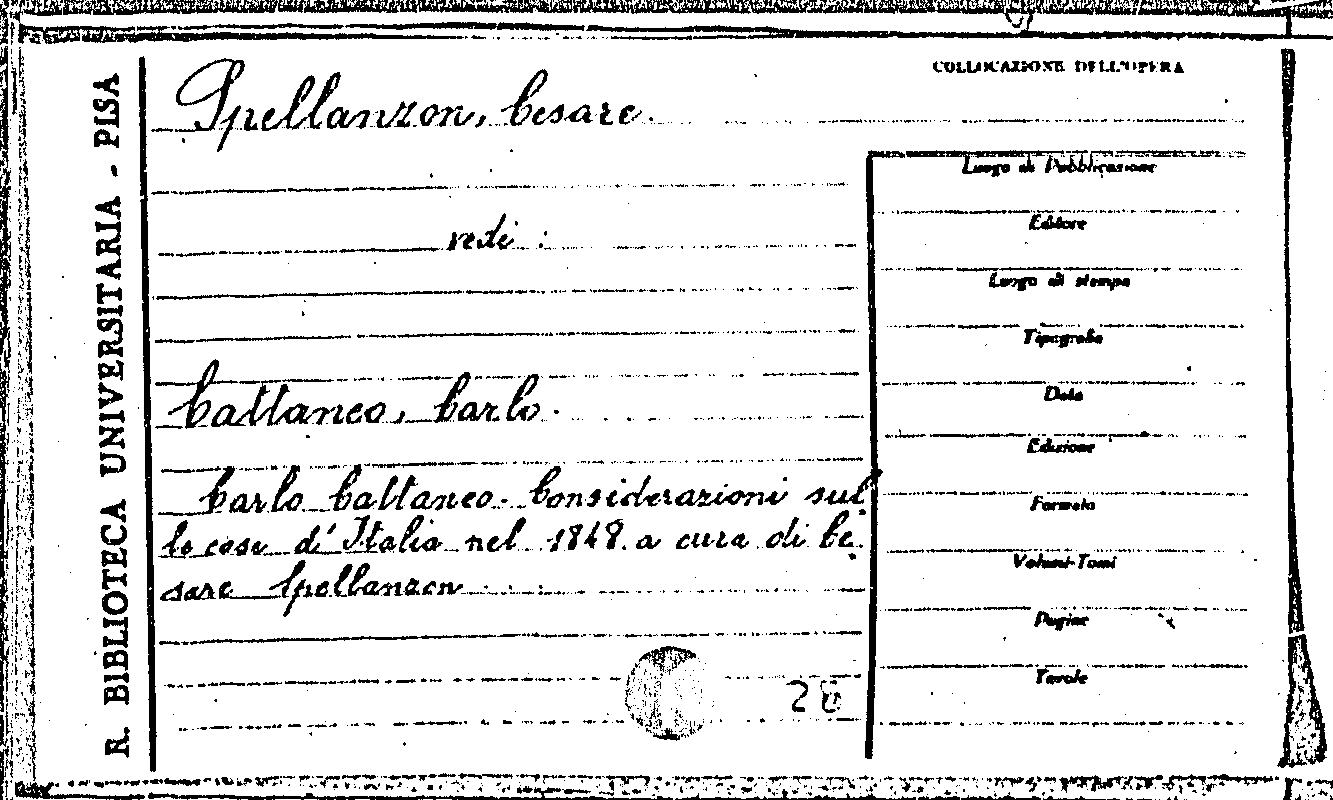 R. BIBLIOTECA UNIVERSITARIA - PISA
COLLOCAZIONE DELL'OPERA
Spellanzon, Cesare.
vedi :
Cattaneo, Carlo.
Carlo Cattaneo. Considerazioni sul
le cose d'Italia nel 1848. a cura di Ce.
sare Spellanzon
Luogo di Pubblicazione
Editore
Luogo di stampa
Tipografia
Data
Edizione
Formato
Volumi-Tomi
Pagine
Tavole